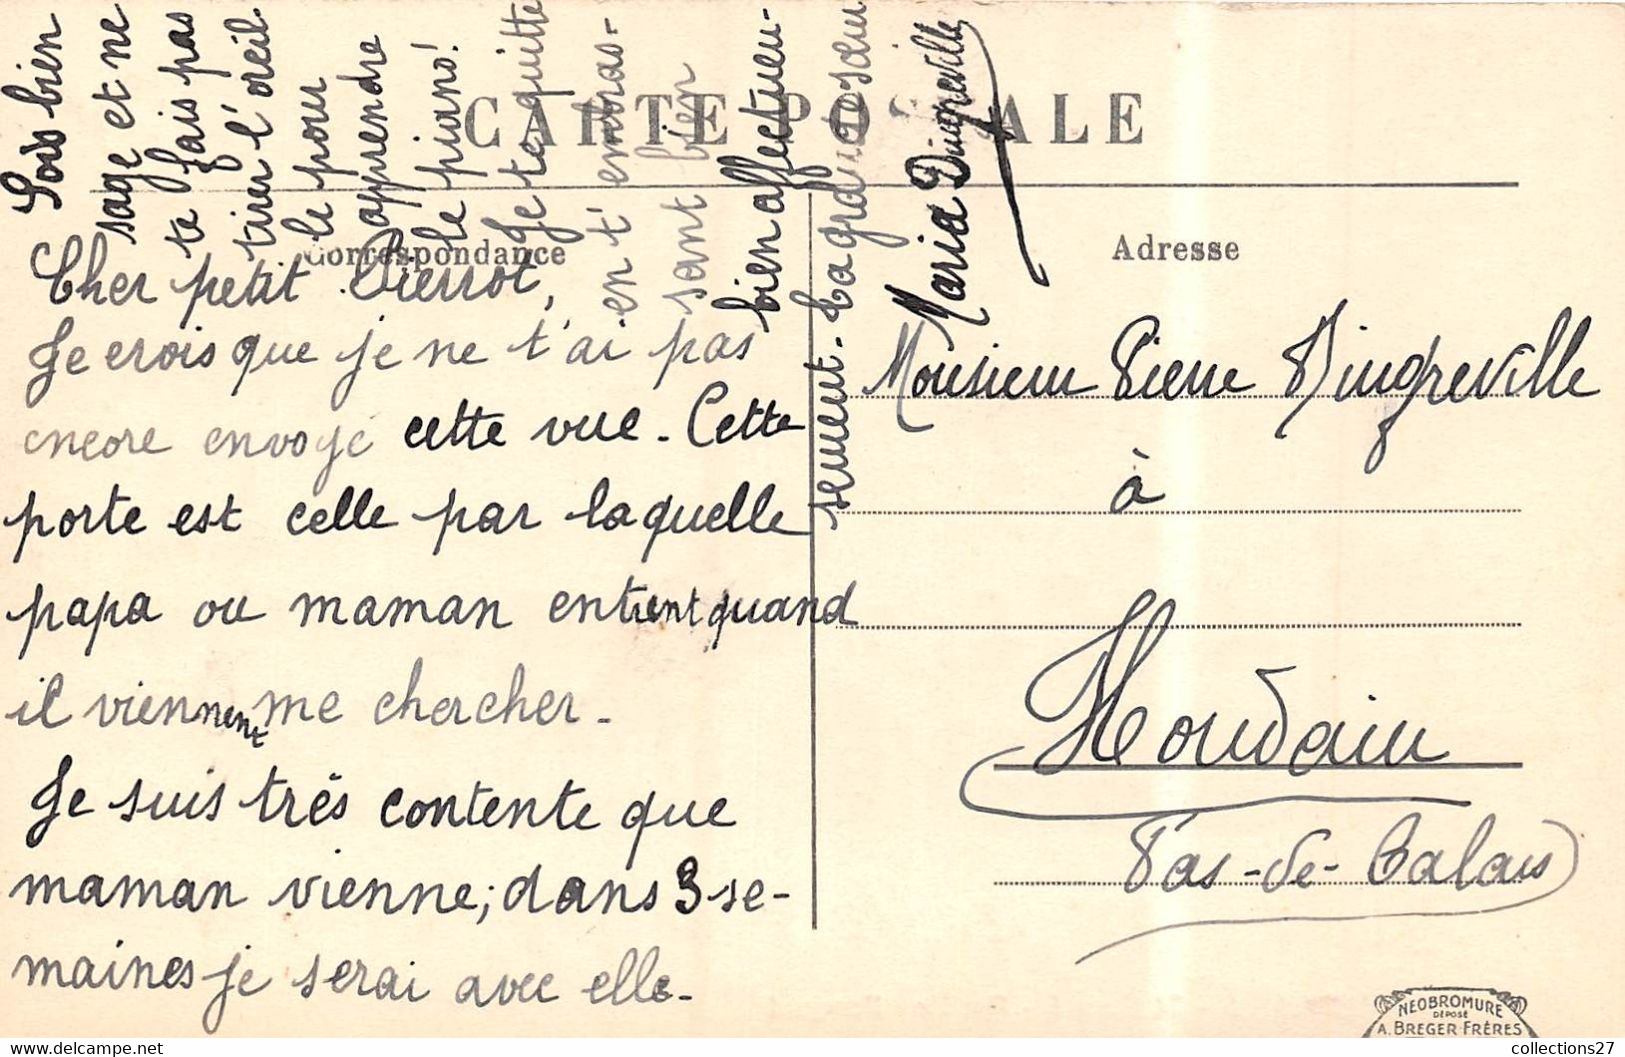 CARTE POSTALE
Correspondance
Adresse
Cher petit Pierrot,
Je crois que je ne t'ai pas
encore envoyé cette vue. Cette
porte est celle par laquelle
papa ou maman entrent quand
il viennent me chercher.
Je suis très contente que
maman vienne; dans 3 se-
maines je serai avec elle.
Sois bien
sage et ne
te fais pas
tirer l'oreil.
le pour
apprendre
le piano!
Je te quitte
en t'embras-
sant bien
bien affectueu-
sement. Ta grde sœur
Maria Dingreville
Monsieur Pierre Dingreville
à
Houdain
Pas-de-Calais
NEOBROMURE
DÉPOSÉ
A. BREGER FRÈRES
collections27